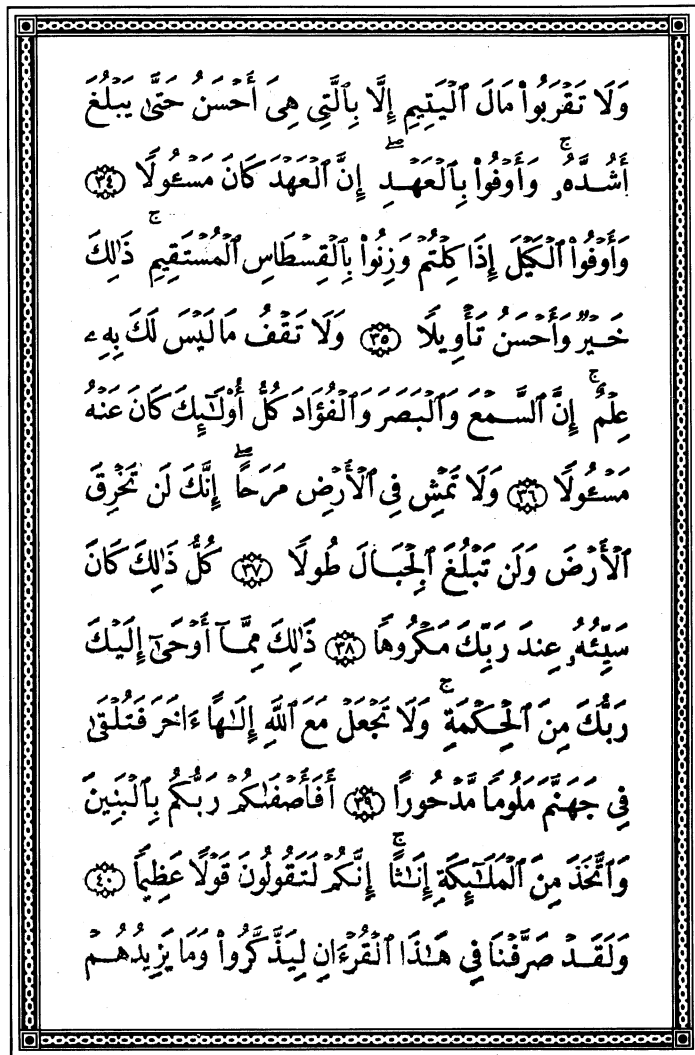 وَلَا تَقْرَبُوا۟ مَالَ ٱلْيَتِيمِ إِلَّا بِٱلَّتِى هِىَ أَحْسَنُ حَتَّىٰ يَبْلُغَ
أَشُدَّهُۥ ۚ وَأَوْفُوا۟ بِٱلْعَهْدِ ۖ إِنَّ ٱلْعَهْدَ كَانَ مَسْـُٔولًا ﴿٣٤﴾
وَأَوْفُوا۟ ٱلْكَيْلَ إِذَا كِلْتُمْ وَزِنُوا۟ بِٱلْقِسْطَاسِ ٱلْمُسْتَقِيمِ ۚ ذَٰلِكَ
خَيْرٌ وَأَحْسَنُ تَأْوِيلًا ﴿٣٥﴾ وَلَا تَقْفُ مَا لَيْسَ لَكَ بِهِۦ
عِلْمٌ ۚ إِنَّ ٱلسَّمْعَ وَٱلْبَصَرَ وَٱلْفُؤَادَ كُلُّ أُو۟لَـٰٓئِكَ كَانَ عَنْهُ
مَسْـُٔولًا ﴿٣٦﴾ وَلَا تَمْشِ فِى ٱلْأَرْضِ مَرَحًا ۖ إِنَّكَ لَن تَخْرِقَ
ٱلْأَرْضَ وَلَن تَبْلُغَ ٱلْجِبَالَ طُولًا ﴿٣٧﴾ كُلُّ ذَٰلِكَ كَانَ
سَيِّئُهُۥ عِندَ رَبِّكَ مَكْرُوهًا ﴿٣٨﴾ ذَٰلِكَ مِمَّآ أَوْحَىٰٓ إِلَيْكَ
رَبُّكَ مِنَ ٱلْحِكْمَةِ ۗ وَلَا تَجْعَلْ مَعَ ٱللَّهِ إِلَـٰهًا ءَاخَرَ فَتُلْقَىٰ
فِى جَهَنَّمَ مَلُومًا مَّدْحُورًا ﴿٣٩﴾ أَفَأَصْفَىٰكُمْ رَبُّكُم بِٱلْبَنِينَ
وَٱتَّخَذَ مِنَ ٱلْمَلَـٰٓئِكَةِ إِنَـٰثًا ۚ إِنَّكُمْ لَتَقُولُونَ قَوْلًا عَظِيمًا ﴿٤٠﴾
وَلَقَدْ صَرَّفْنَا فِى هَـٰذَا ٱلْقُرْءَانِ لِيَذَّكَّرُوا۟ وَمَا يَزِيدُهُمْ